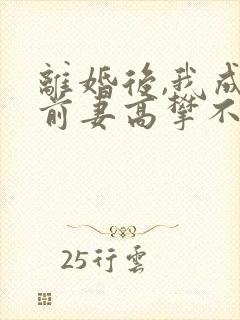 離婚後,我成
前妻高攀不
25行雲